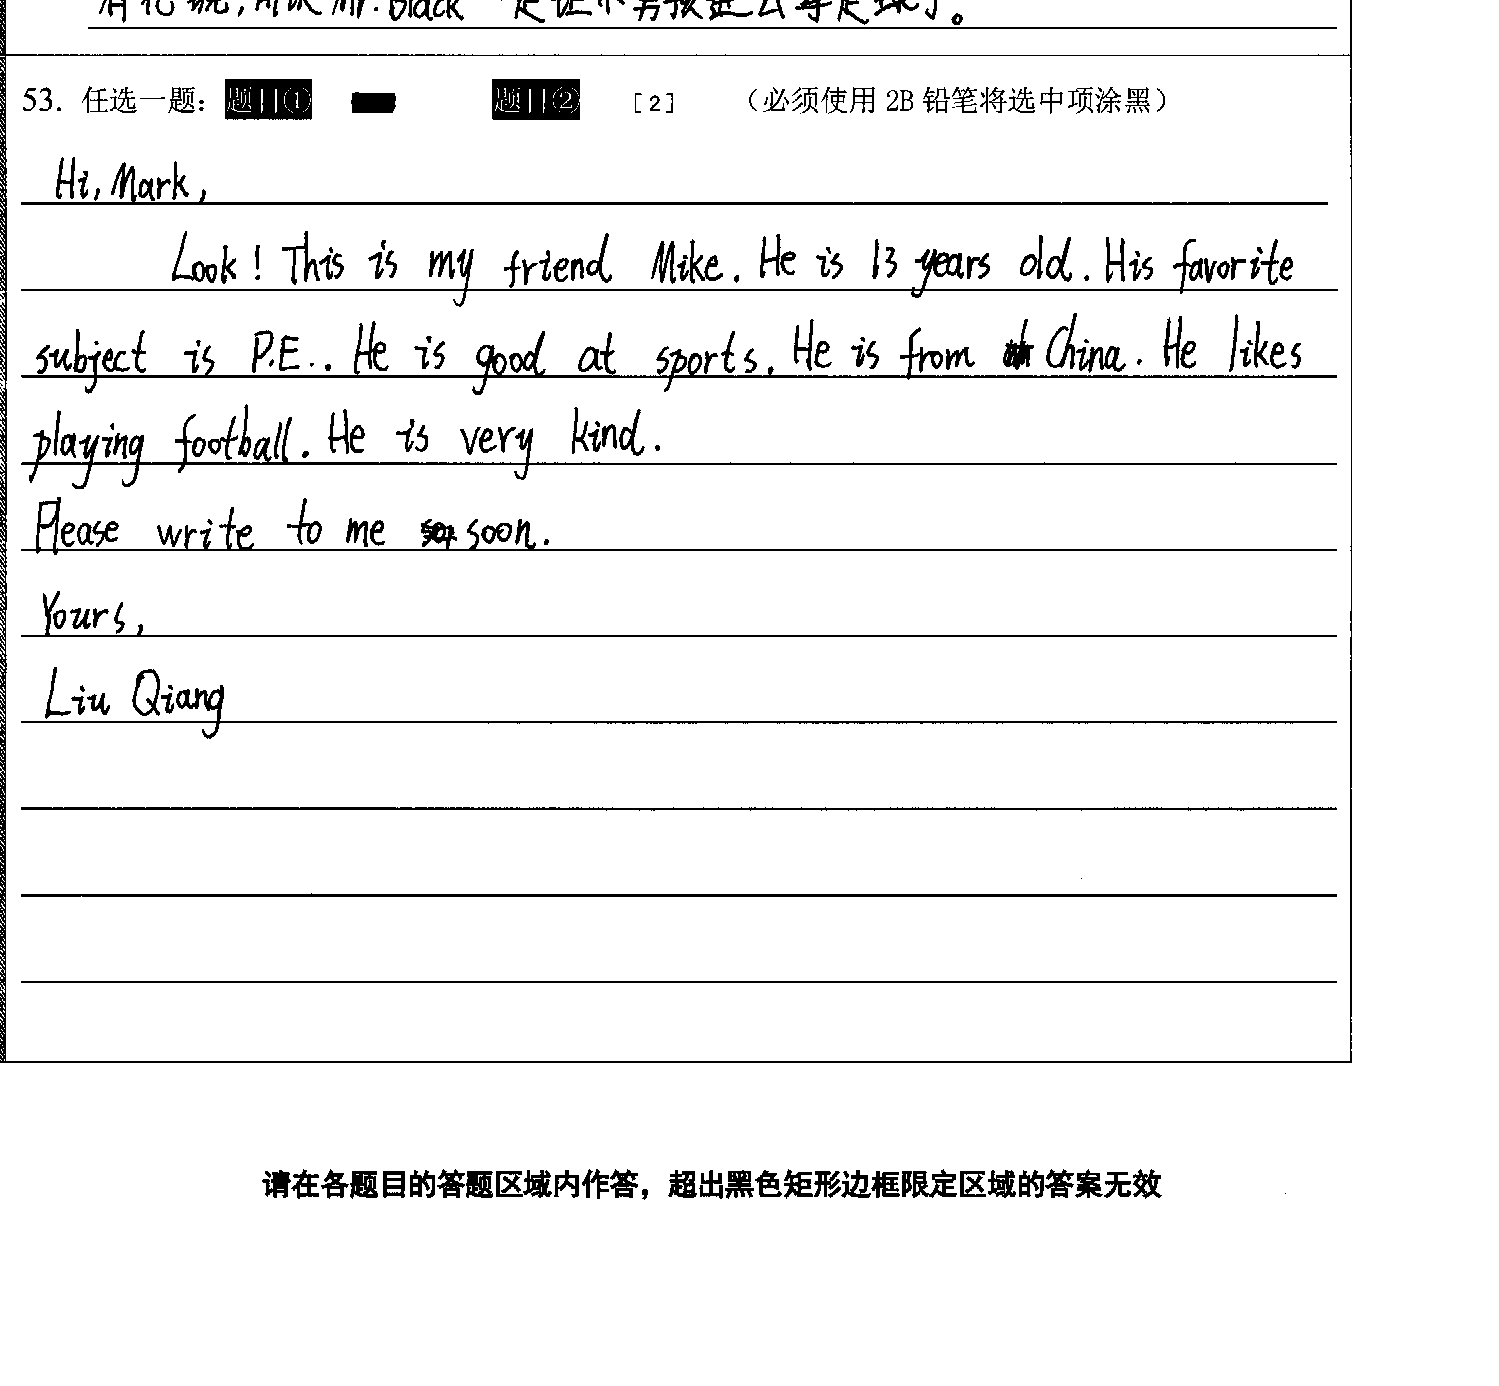 Mr. Black
53. 任选一题： 题目① 题目② [2] （必须使用 2B 铅笔将选中项涂黑）
Hi, Mark,
Look! This is my friend Mike. He is 13 years old. His favorite
subject is P.E.. He is good at sports. He is from China. He likes
playing football. He is very kind.
Please write to me soon.
Yours,
Liu Qiang
请在各题目的答题区域内作答，超出黑色矩形边框限定区域的答案无效